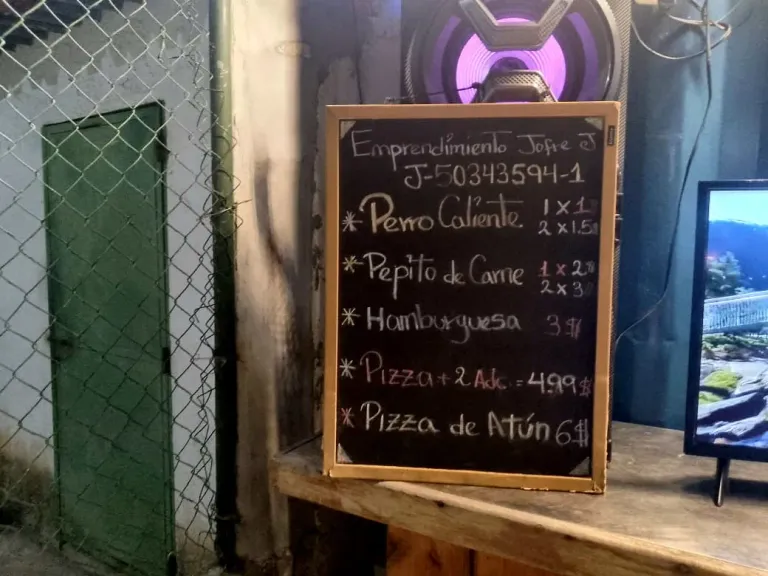 Emprendimiento Jofre J
J-50343594-1
* Perro Caliente 1 x 1$
2 x 1.5$
* Pepito de Carne 1 x 2$
2 x 3$
* Hamburguesa 3$
* Pizza + 2 Adc. = 4.99$
* Pizza de Atún 6$